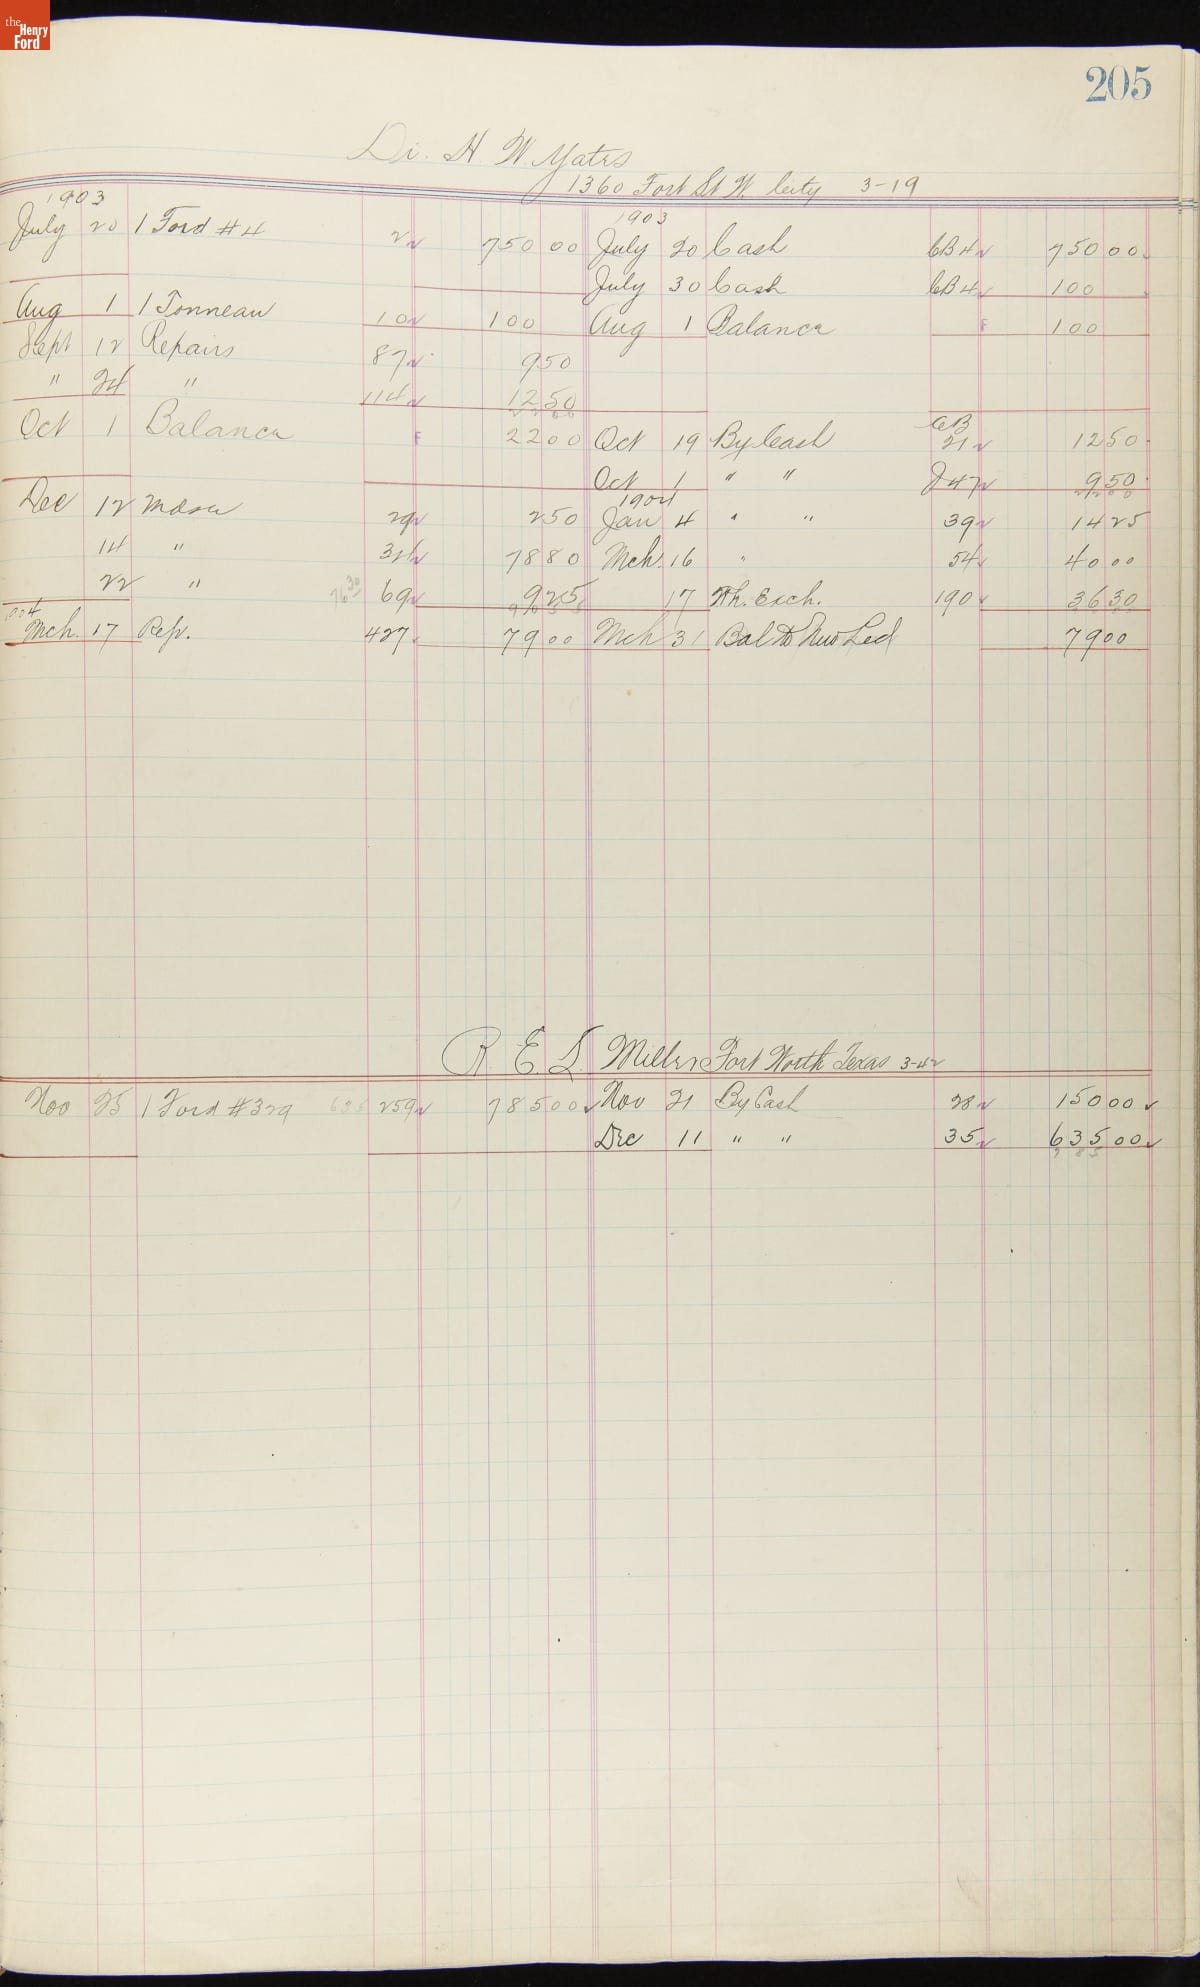 the Henry Ford
205
Dr. H W. Yates
1360 Fort St W. City 3-19
1903 1903
July 20 1 Ford #4 2 750 00 July 20 Cash CB4 750 00
July 30 Cash CB4 100
Aug 1 1 Tonneau 10 100 Aug 1 Balance F 100
Sept 12 Repairs 87 9 50
" 24 " 114 12 50
Oct 1 Balance F 22 00 Oct 19 By Cash CB 21 12 50
Oct 1 " " J47 9 50
22 00
1904
Dec 12 Mdse 29 2 50 Jan 4 " " 39 14 25
14 " 34 78 80 Mch. 16 " 54 40 00
22 " 76 30 69 9 25 17 Th. Exch. 190 36 30
1904
Mch. 17 Rep. 427 79 00 Mch 31 Bal to New Led 79 00
R. E. L. Miller Fort Worth Texas 3-42
Nov 25 1 Ford #329 635 259 785 00 Nov 21 By Cash 28 150 00
Dec 11 " " 35 635 00
785